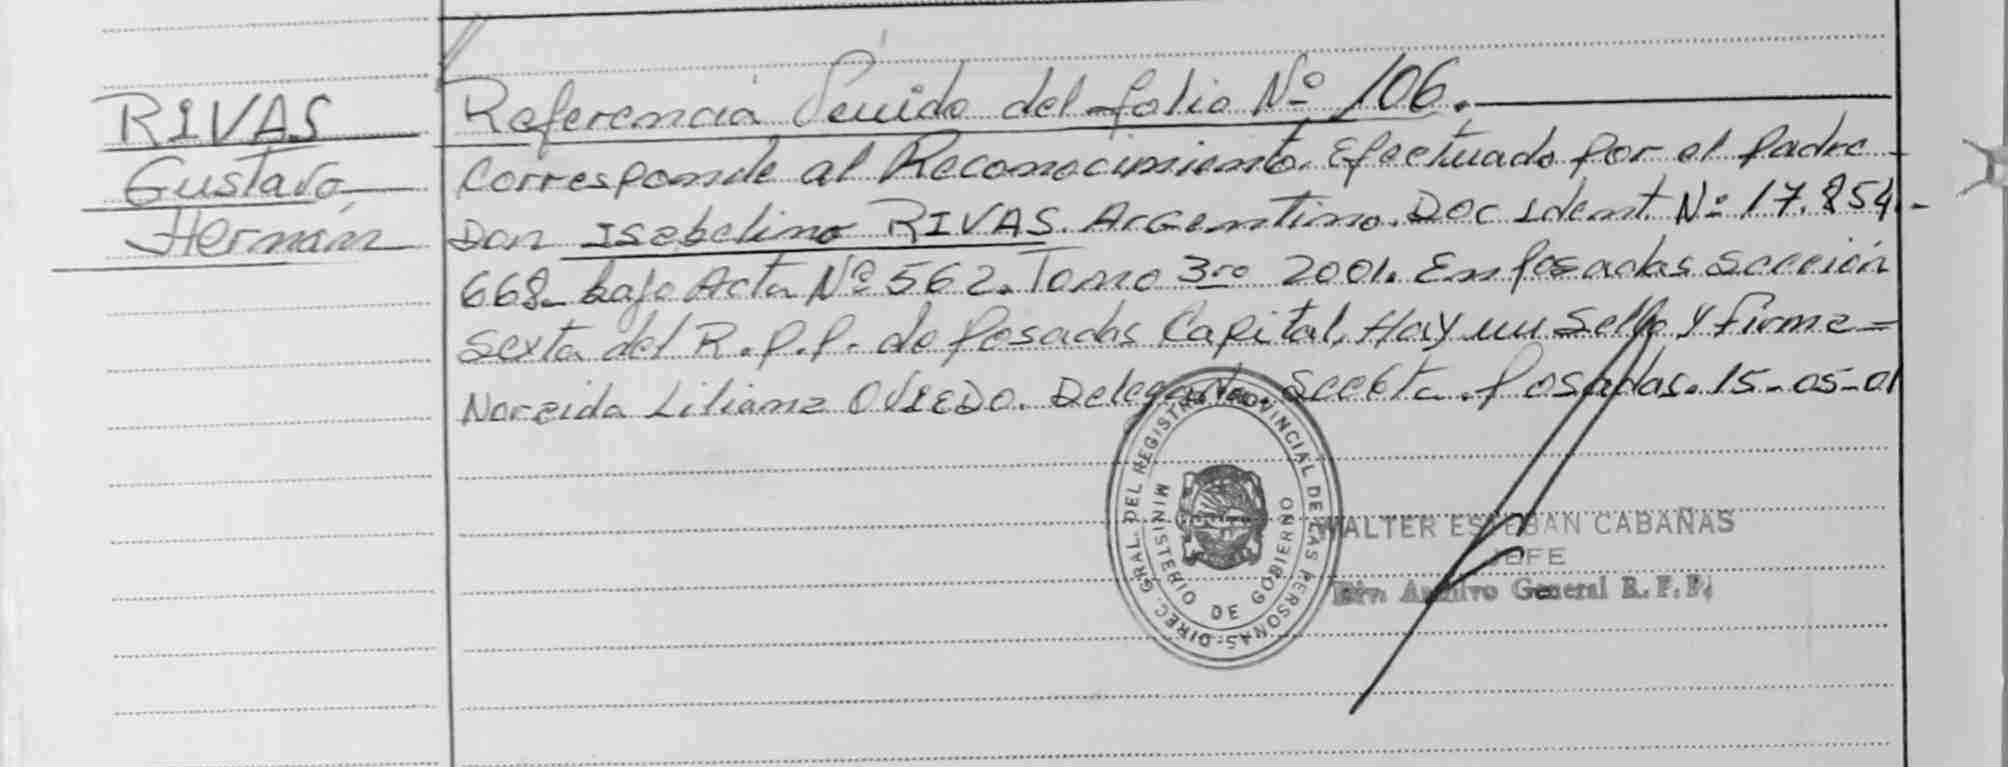 RIVAS
Gustavo
Hernán
Referencia del folio Nº 106.
Corresponde al Reconocimiento. Efectuado por el padre
Don Isabelino RIVAS. Argentino. Doc Ident. Nº 17.854.-
668_ bajo Acta Nº 562. Tomo 3ro 2001. En Posadas Sección
Sexta del R.P.P. de Posadas Capital, Hay un Sello y firma=
Liliana OVIEDO. Delegada. Posadas. 15-05-01
DIREC. GRAL. DEL REGISTRO PROVINCIAL DE LAS PERSONAS-
MINISTERIO DE GOBIERNO
WALTER ESTEBAN CABAÑAS
JEFE
Div. Archivo General R. P. P.